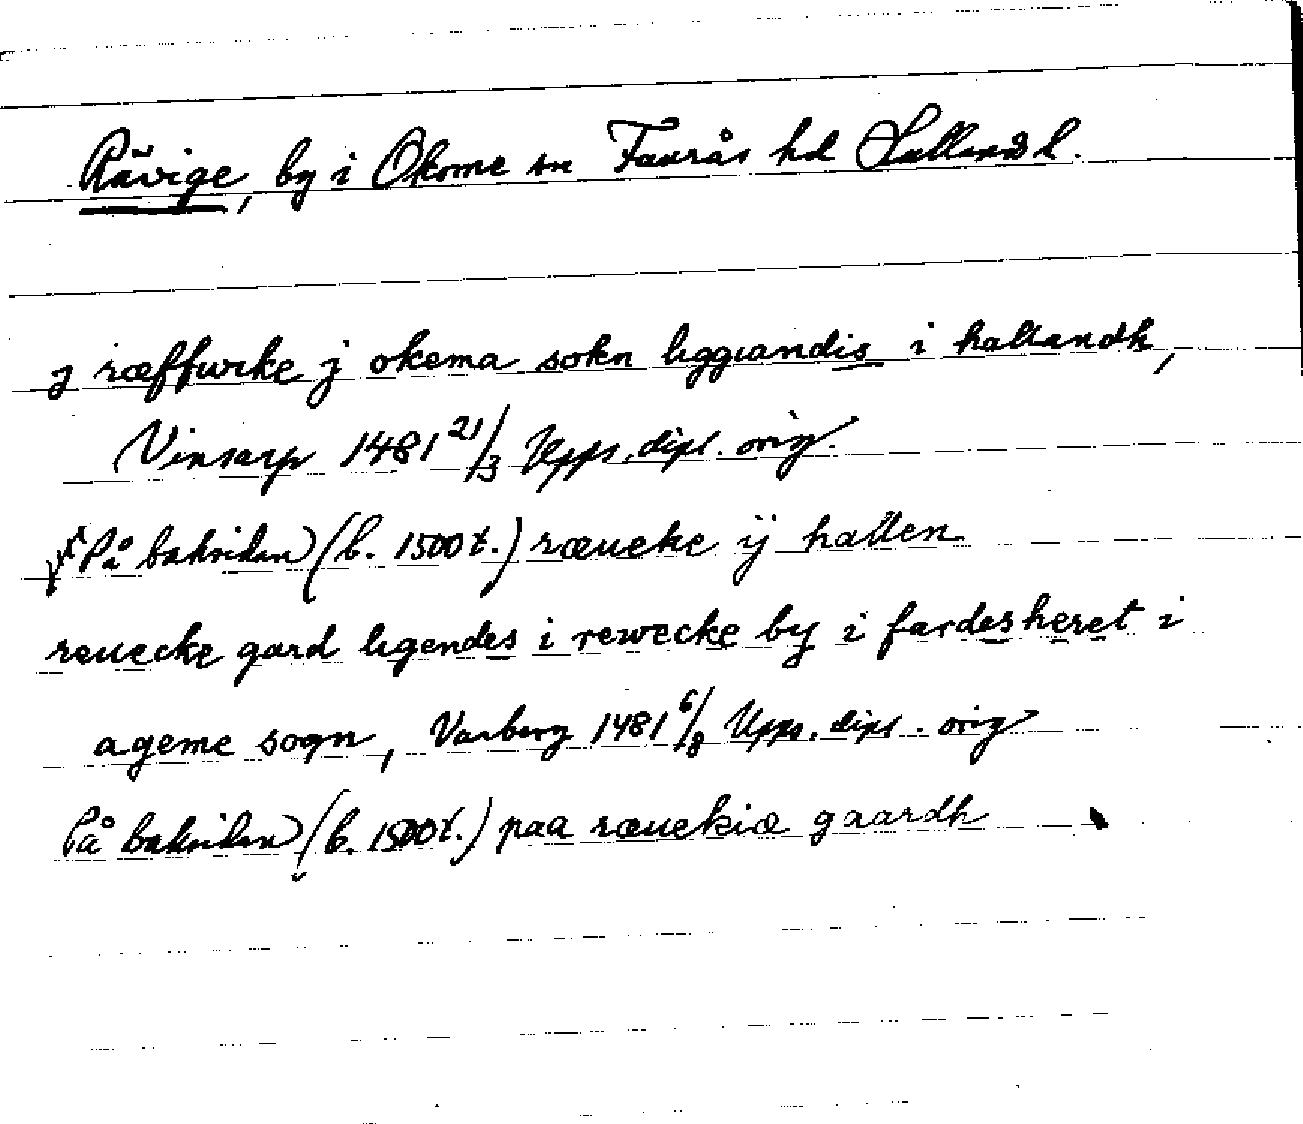 Rävige, by i Okome sn Faurås hd Hallands l.
j ræffwike j okema sokn liggiandis i hallandh,
Vinsarp 1481 21/3 Upps. dipl. orig.
På baksidan (b. 1500 t.) ræueke ij hallen
reuecke gard ligendes i rewecke by i fardesheret i
ageme sogn, Varberg 1481 6/8 Upps. dipl. orig
På baksidan (b. 1500 t.) paa ræuekiæ gaardh